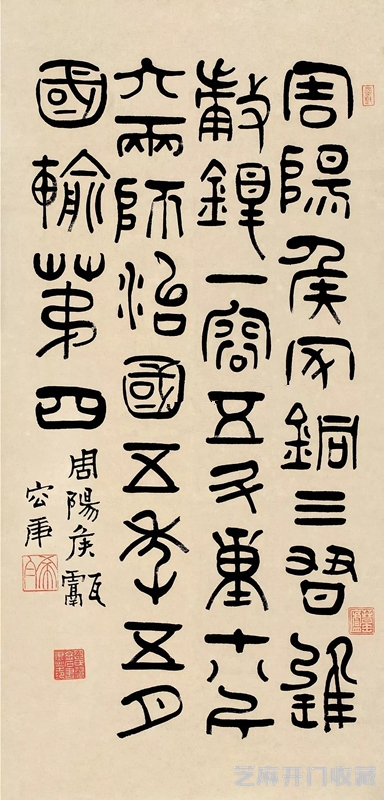 周陽侯家銅三習
一容五斗重十八斤
六兩師治國五年五月
國輸第四
周陽侯甗
芝麻开门收藏